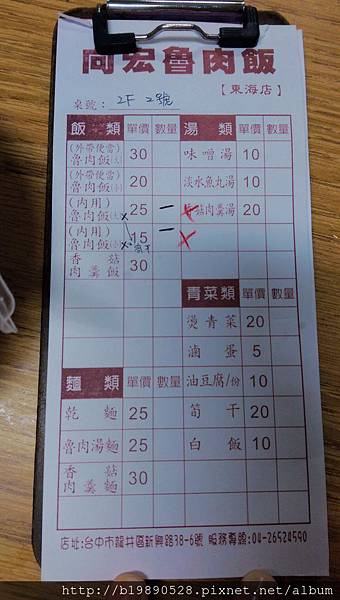 尚宏魯肉飯
【東海店】
桌號：2F 2號
飯類 單價 數量 湯類 單價 數量
(外帶便當)魯肉飯(大) 30 味噌湯 10
(外帶便當)魯肉飯(小) 20 淡水魚丸湯 10
(內用)魯肉飯(大) 25 一 香菇肉羹湯 20
(內用)魯肉飯(小) 15 一
香菇肉羹飯 30
青菜類 單價 數量
燙青菜 20
滷蛋 5
麵類 單價 數量 油豆腐/份 10
乾麵 25 筍干 20
魯肉湯麵 25 白飯 10
香菇肉羹麵 30
店址:台中市龍井區新興路38-6號 服務專線:04-26524590
http://b19890528.pixnet.net/album